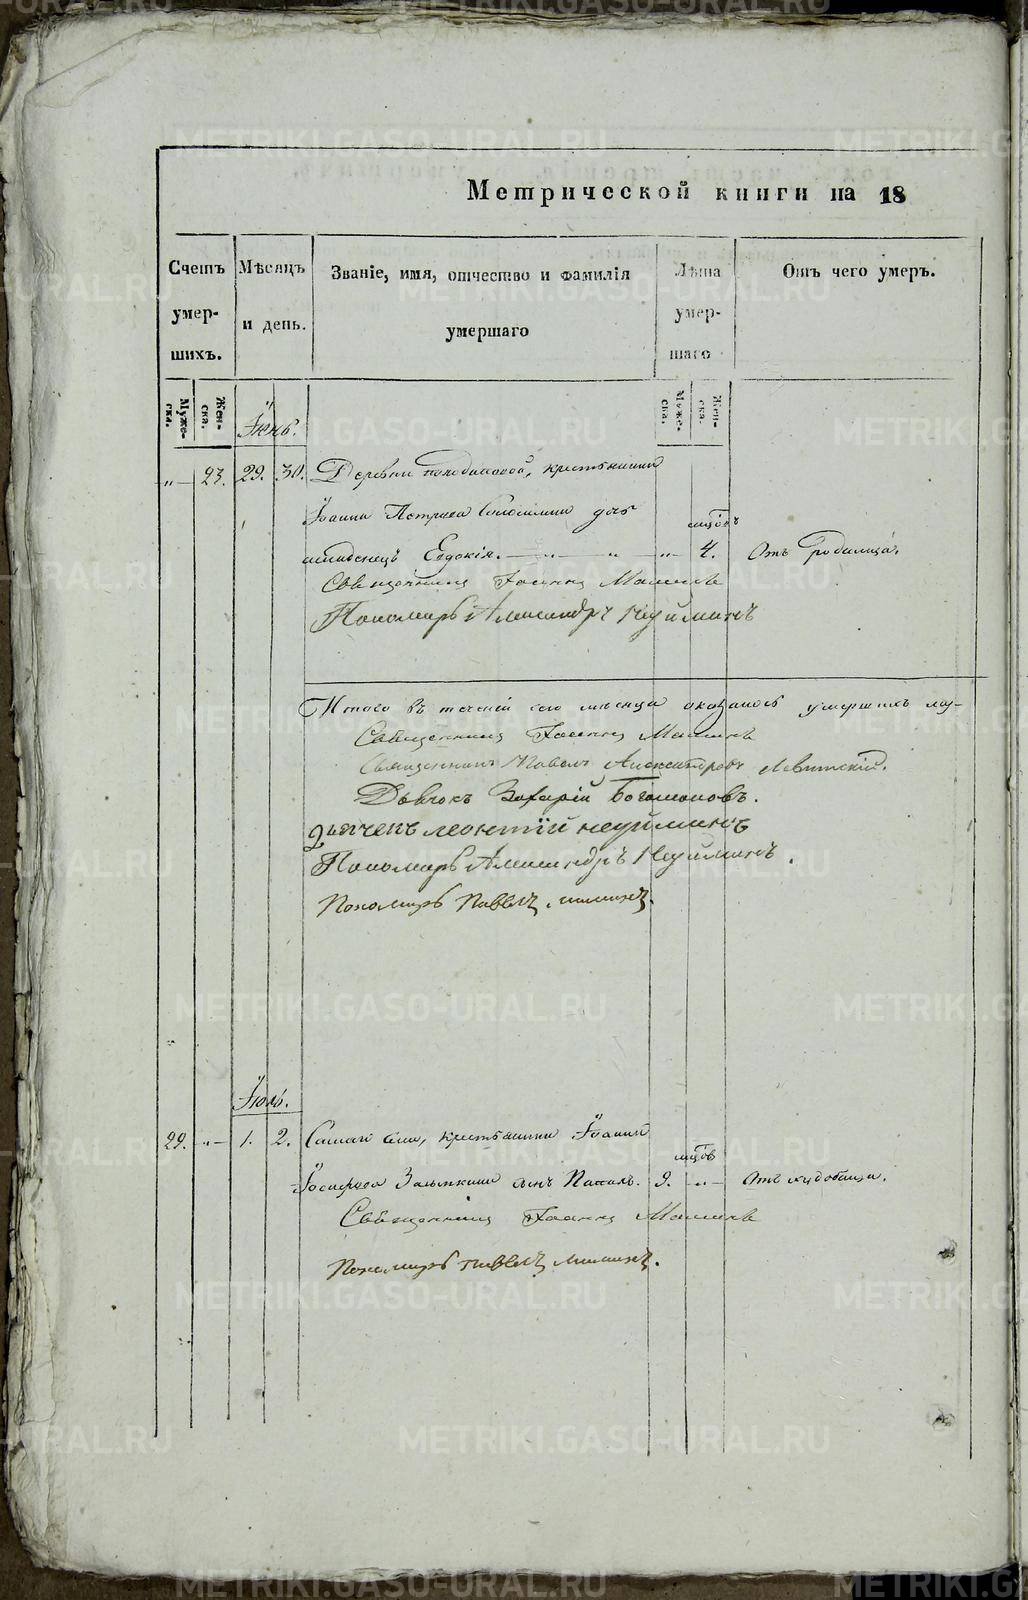 Метрической книги на 18
Счетъ умер-шихъ.
Мѣсяцъ и день.
Званіе, имя, отчество и фамилія умершаго
Лѣта умер-шаго
Отъ чего умеръ.
Муже-ска.
Жен-ска.
Муже-ска.
Жен-ска.
Іюнь.
„ 23. 29. 30. Деревни крестьянина
Іоанна Петрова дочь
младенецъ Евдокія. „ „ „ 4. Отъ родимца.
Священникъ Іоаннъ
Пономарь Александръ Неуйминъ
Итого въ теченіи сего мѣсяца оказалось умершихъ му-
Священникъ Іоаннъ
Священникъ Павелъ Александровъ Левитскій.
Дьячокъ Захарій Богомоловъ.
Дьячекъ леонтій неуйминъ
Пономарь Александръ Неуйминъ.
Пономарь Павелъ
Іюль.
29. „ 1. 2. Самаго села, крестьянина Іоанна
Іосифова сынъ 9. „
Священникъ Іоаннъ
Пономарь павелъ
METRIKI.GASO-URAL.RU